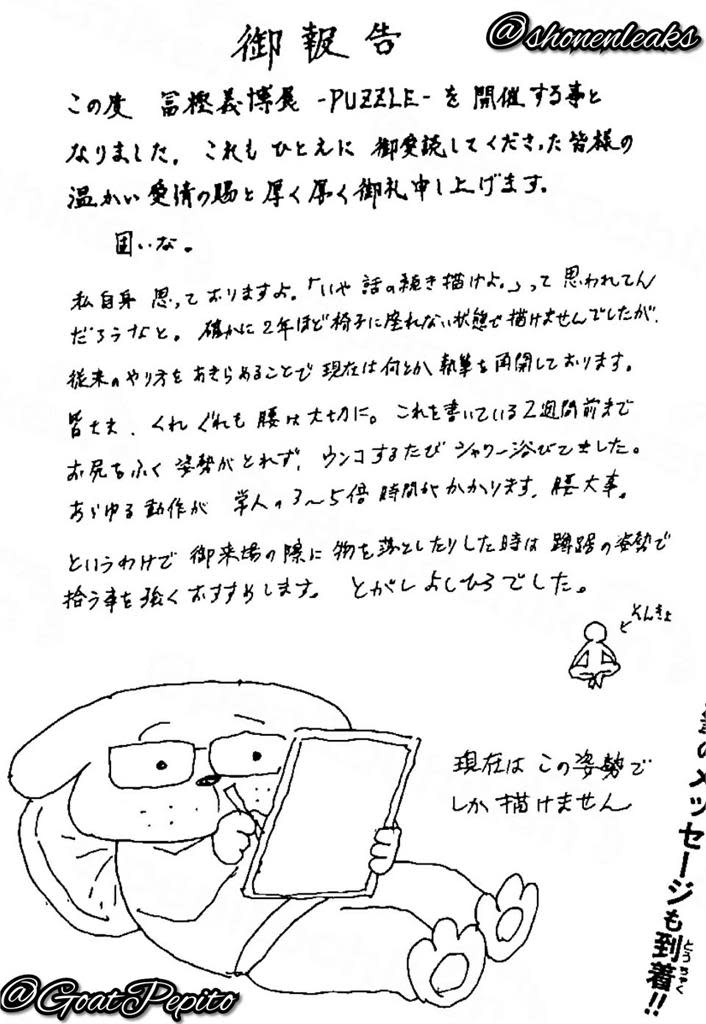 @shonenleaks
御報告
この度 冨樫義博展 -PUZZLE- を開催する事と
なりました。これもひとえに 御愛読してくださった皆様の
温かい愛情の賜と厚く厚く御礼申し上げます。
固いな。
私自身 思っておりますよ。「いや 話の続き描けよ。」って思われてん
だろうなと。確かに2年ほど椅子に座れない状態で描けませんでしたが、
従来のやり方をあきらめることで現在は何とか執筆を再開しております。
皆士夫、くれぐれも腰は大切に。これを書いている2週間前まで
お尻をふく姿勢がとれず、ウンコするたびシャワー浴びてました。
あらゆる動作が 常人の3〜5倍時間がかかります。腰大事。
というわけで御来場の際に物を落としたりした時は蹲踞の姿勢で
拾う事を強くおすすめします。とがしよしひろでした。
そんきょ
現在は この姿勢で
しか描けません
のメッセージも到着!!
とうちゃく
@GoatPepito